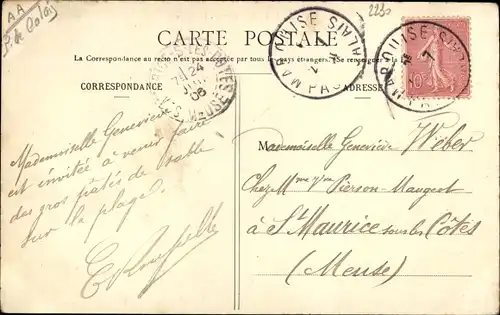 AA
P. de Calais
2230
CARTE POSTALE
La Correspondance au recto n'est pas acceptée par tous les pays étrangers. (Se renseigner à la
CORRESPONDANCE
ADRESSE
MARQUISE
PAS
CALAIS
MARQUISE
CALAIS
10c
7h 24
06
MEUSE
Mademoiselle Geneviève
est invitée à venir faire
des gros pâtés de sable
sur la plage.
Mademoiselle Geneviève Wéber
Chez Mme Vve Pierson-Maugeot
à St Maurice sous les Côtes
(Meuse)